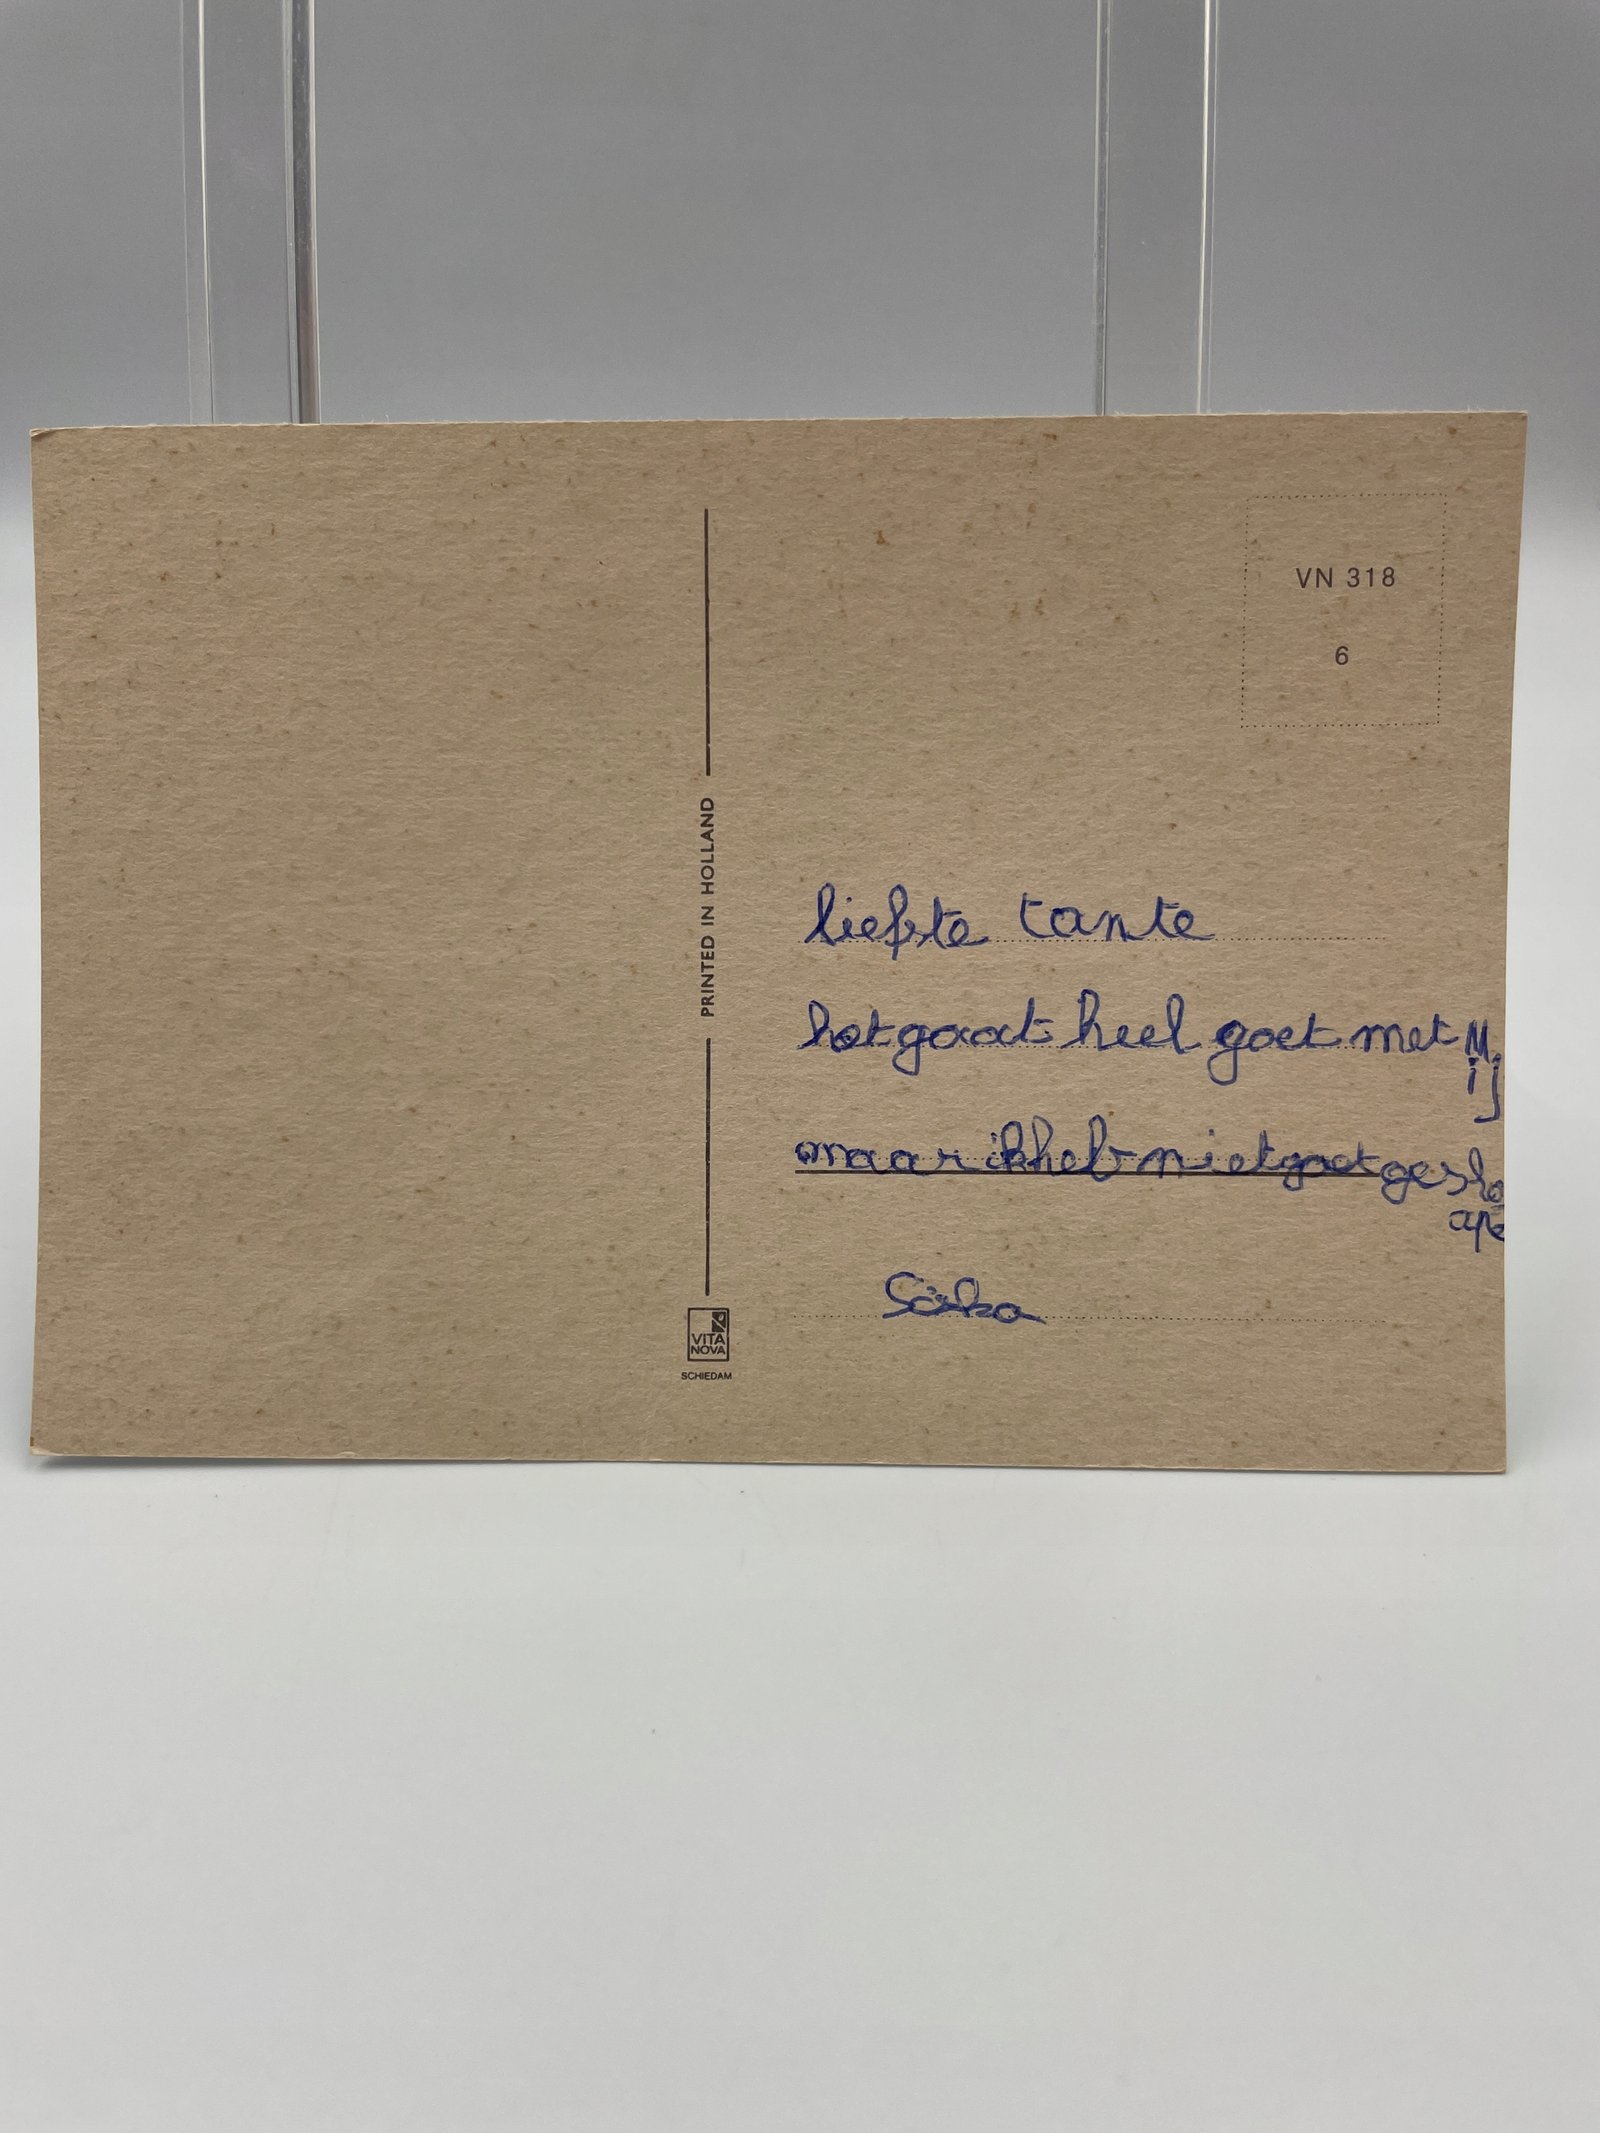 VN 318
6
PRINTED IN HOLLAND
liefste tante
het gaat heel goet met Mij
maar ik heb niet goet
VITA
NOVA
SCHIEDAM